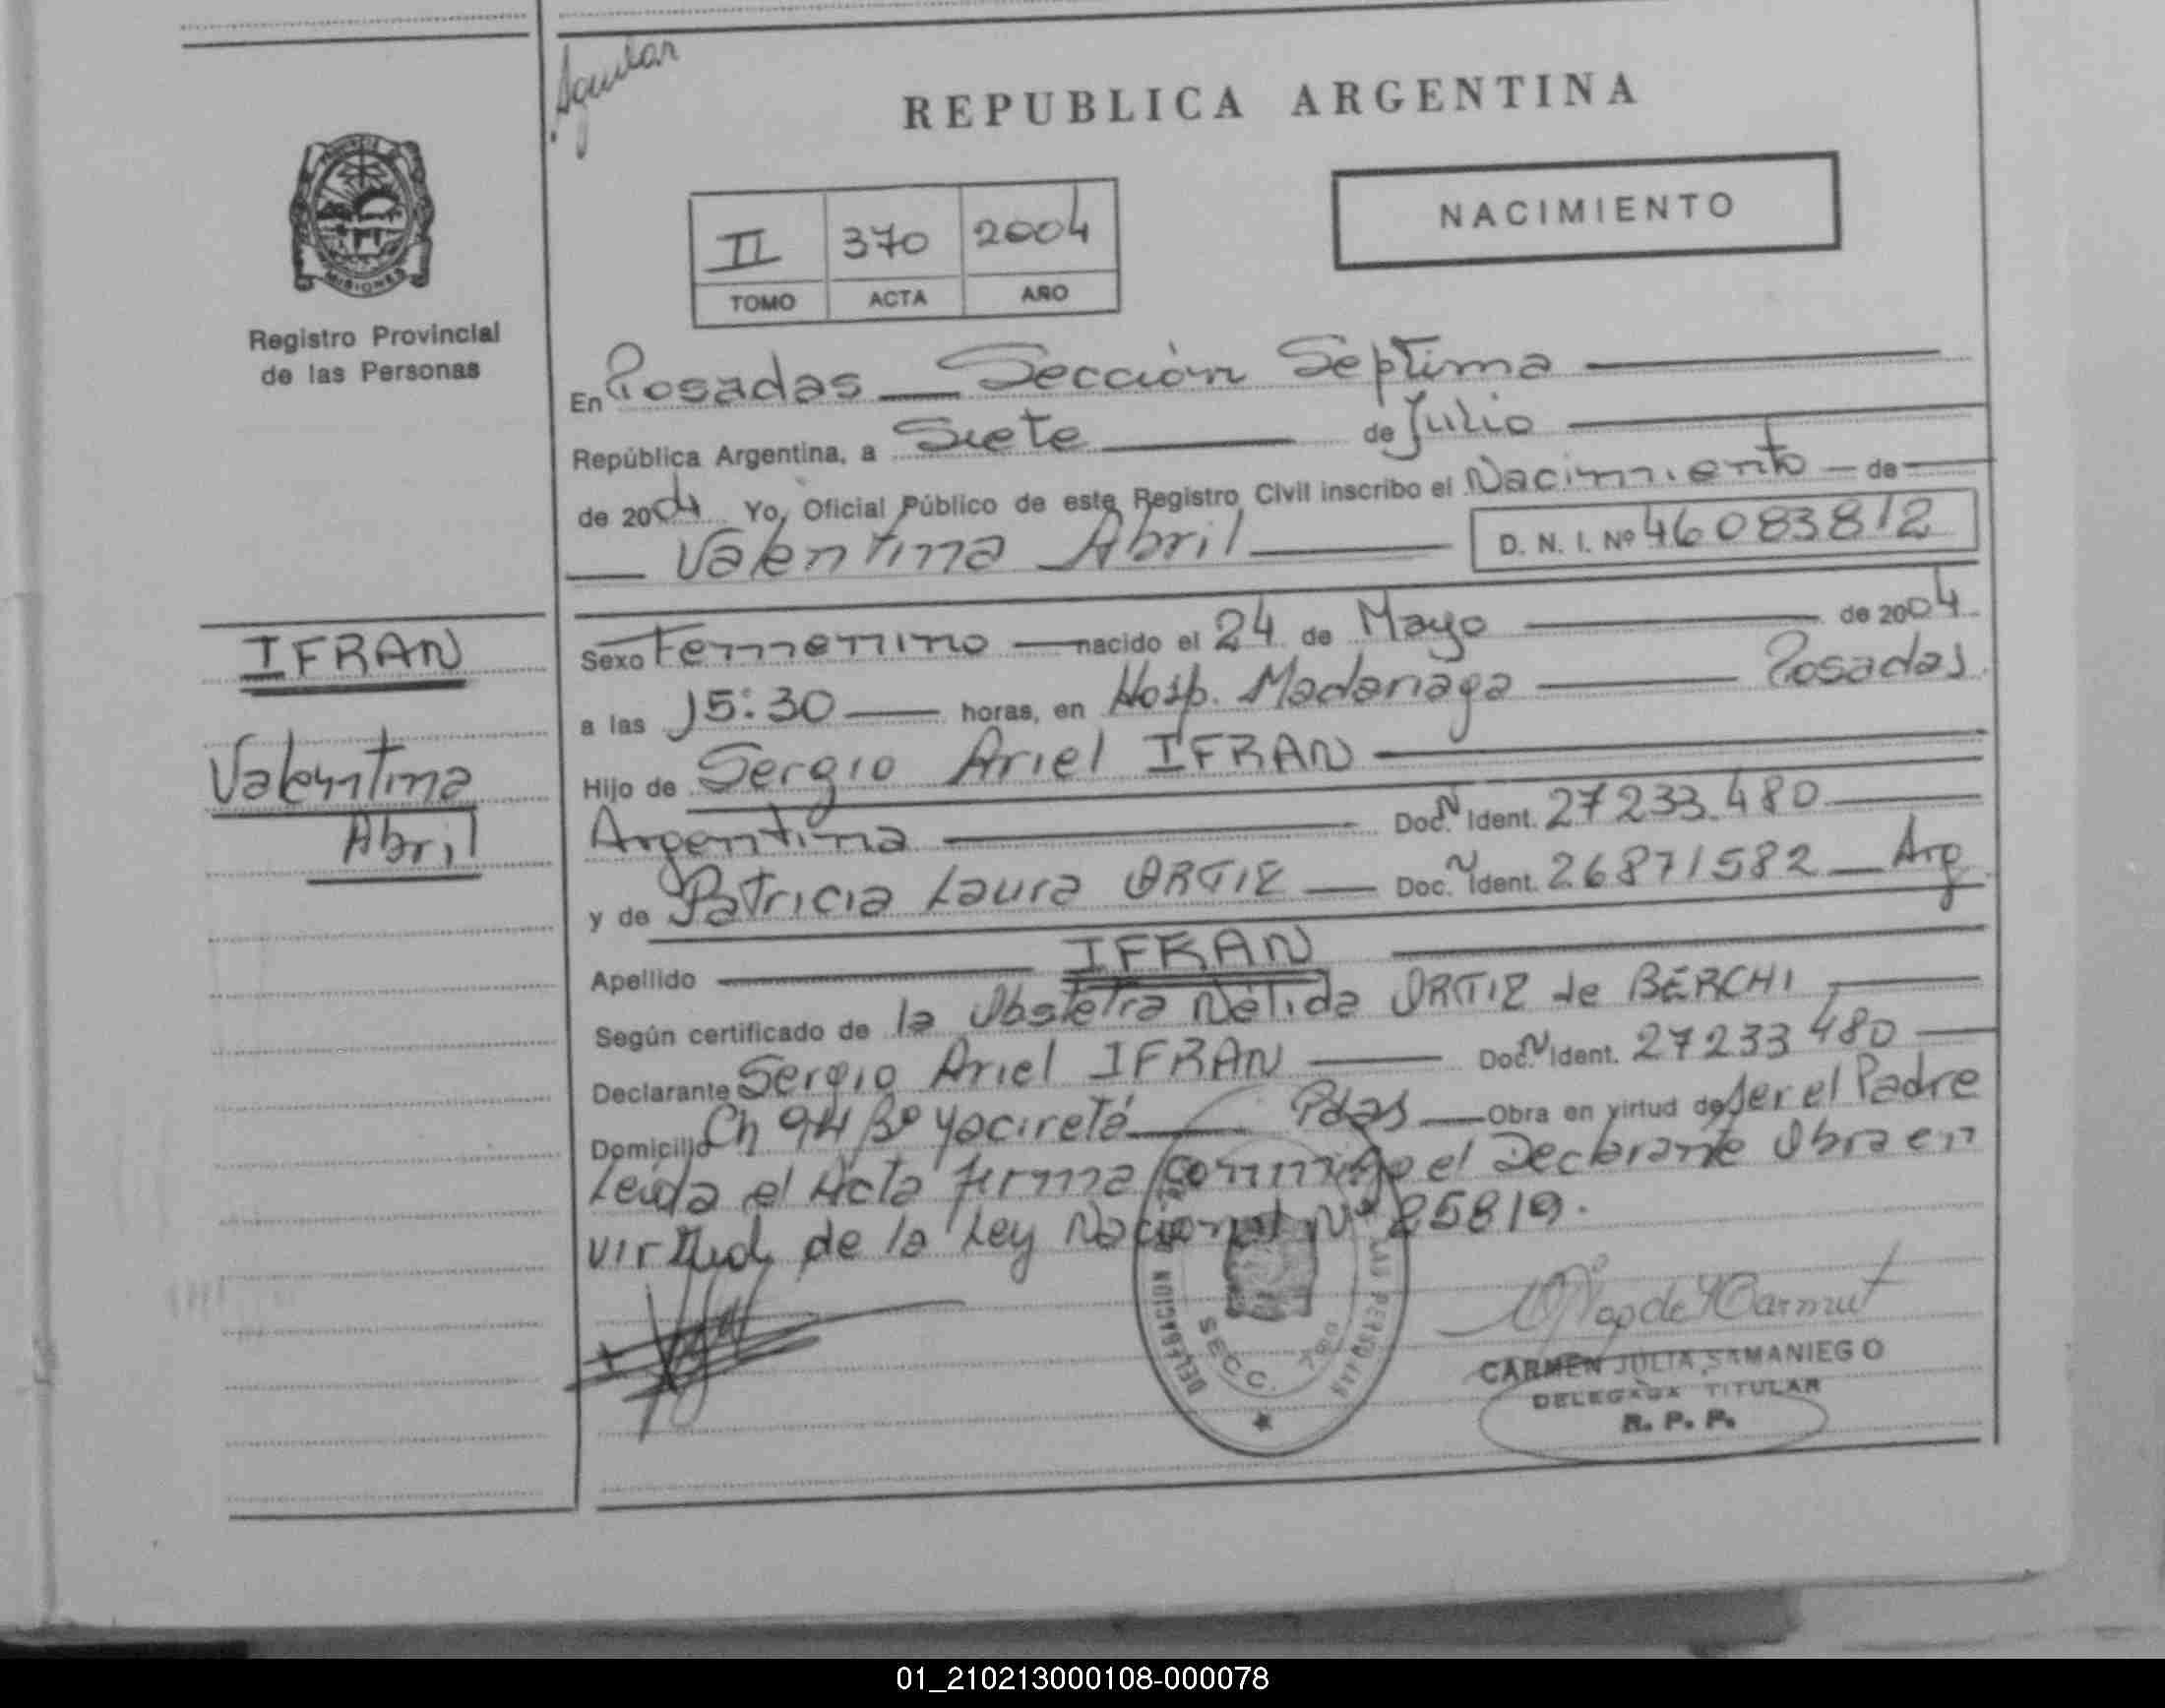 Aguilar
REPUBLICA ARGENTINA
NACIMIENTO
II 370 2004
TOMO ACTA AÑO
MISIONES
Registro Provincial
de las Personas
En Posadas Sección Septima
República Argentina, a Siete de Julio
de 2004 Yo, Oficial Público de este Registro Civil inscribo el Nacimiento de
Valentina Abril D. N. I. Nº 46083812
IFRAN
Valentina
Abril
Sexo Femenino nacido el 24 de Mayo de 2004
a las 15:30 horas, en Hosp. Madariaga Posadas
Hijo de Sergio Ariel IFRAN
Argentina Doc. N Ident. 27233480
y de Patricia Laura ORTIZ Doc. N Ident. 26871582 Arg
Apellido IFRAN
Según certificado de la Obstetra Nélida ORTIZ de BERCHI
Declarante Sergio Ariel IFRAN Doc. N Ident. 27233480
Domicilio Ch 94 Bº Yaciretá Pdas Obra en virtud de Ser el Padre
Leída el Acta firma conmigo el Declarante Obra en
virtud de la Ley Nacional Nº 25819.
DELEGACION LAS PERSONAS
SECC. 7
CARMEN JULIA SAMANIEGO
DELEGADA TITULAR
R. P. P.
01_210213000108-000078